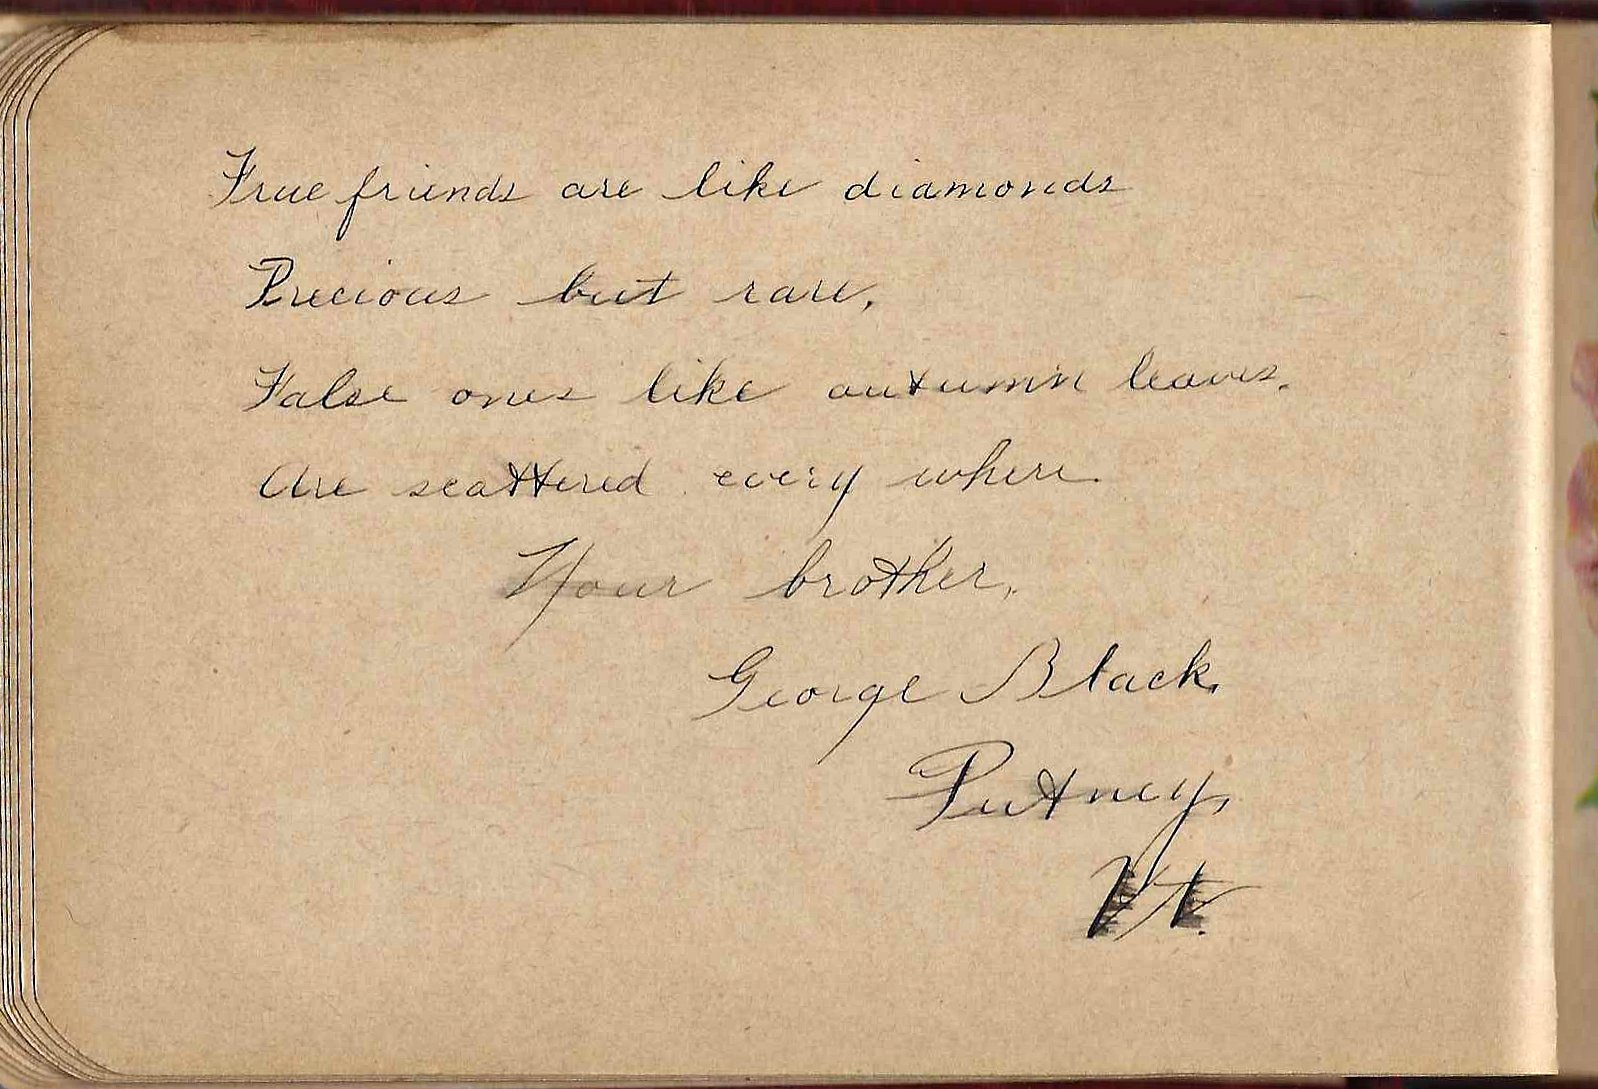 True friends are like diamonds
Precious but rare,
False ones like autumn leaves.
Are scattered every where.
Your brother,
George Black,
Putney,
Vt.